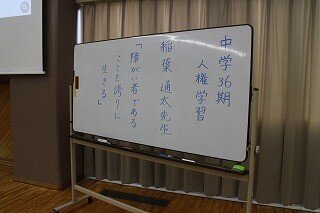 中学36期
人権学習
稲葉通太先生
「障がい者である
ことを誇りに
生きる」